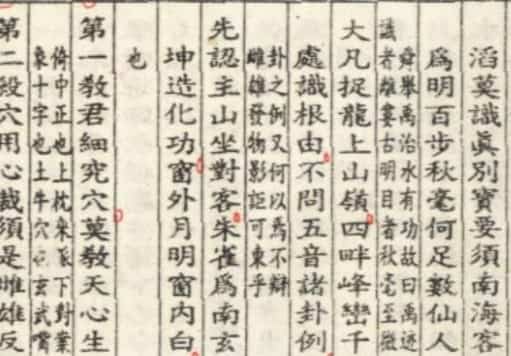 滔莫識眞別寶要須南海客
爲明百步秋毫何足數仙人
舜舉禹治水有功故曰禹迹
識者離婁古明目者秋毫至微
大凡捉龍上山嶺四畔峰巒千
處識根由不問五音諸卦例
卦之例又何以爲不辯
雌雄發物影詎可東乎
先認主山坐對客朱雀爲南玄
坤造化功窗外月明窗内白
也
第一教君細究穴莫教天心生
倚中正也上枕来脉下對業
象十字也土牛穴名玄武嘴
第二殺穴用心裁須是雌雄反